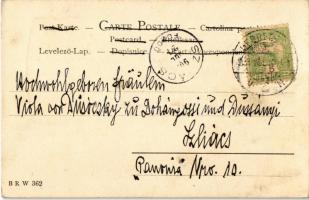 Post-Karte. — CARTE POSTALE — Cartolina p
Postcard.
Levelező-Lap. — Dopisnice
SZLIÁCS
Hochwohlgeboren Fräulein
Viola von Dubovszky zu Dohányosi und Dussányi
Szliács
Panonia Nro. 10.
B R W 362